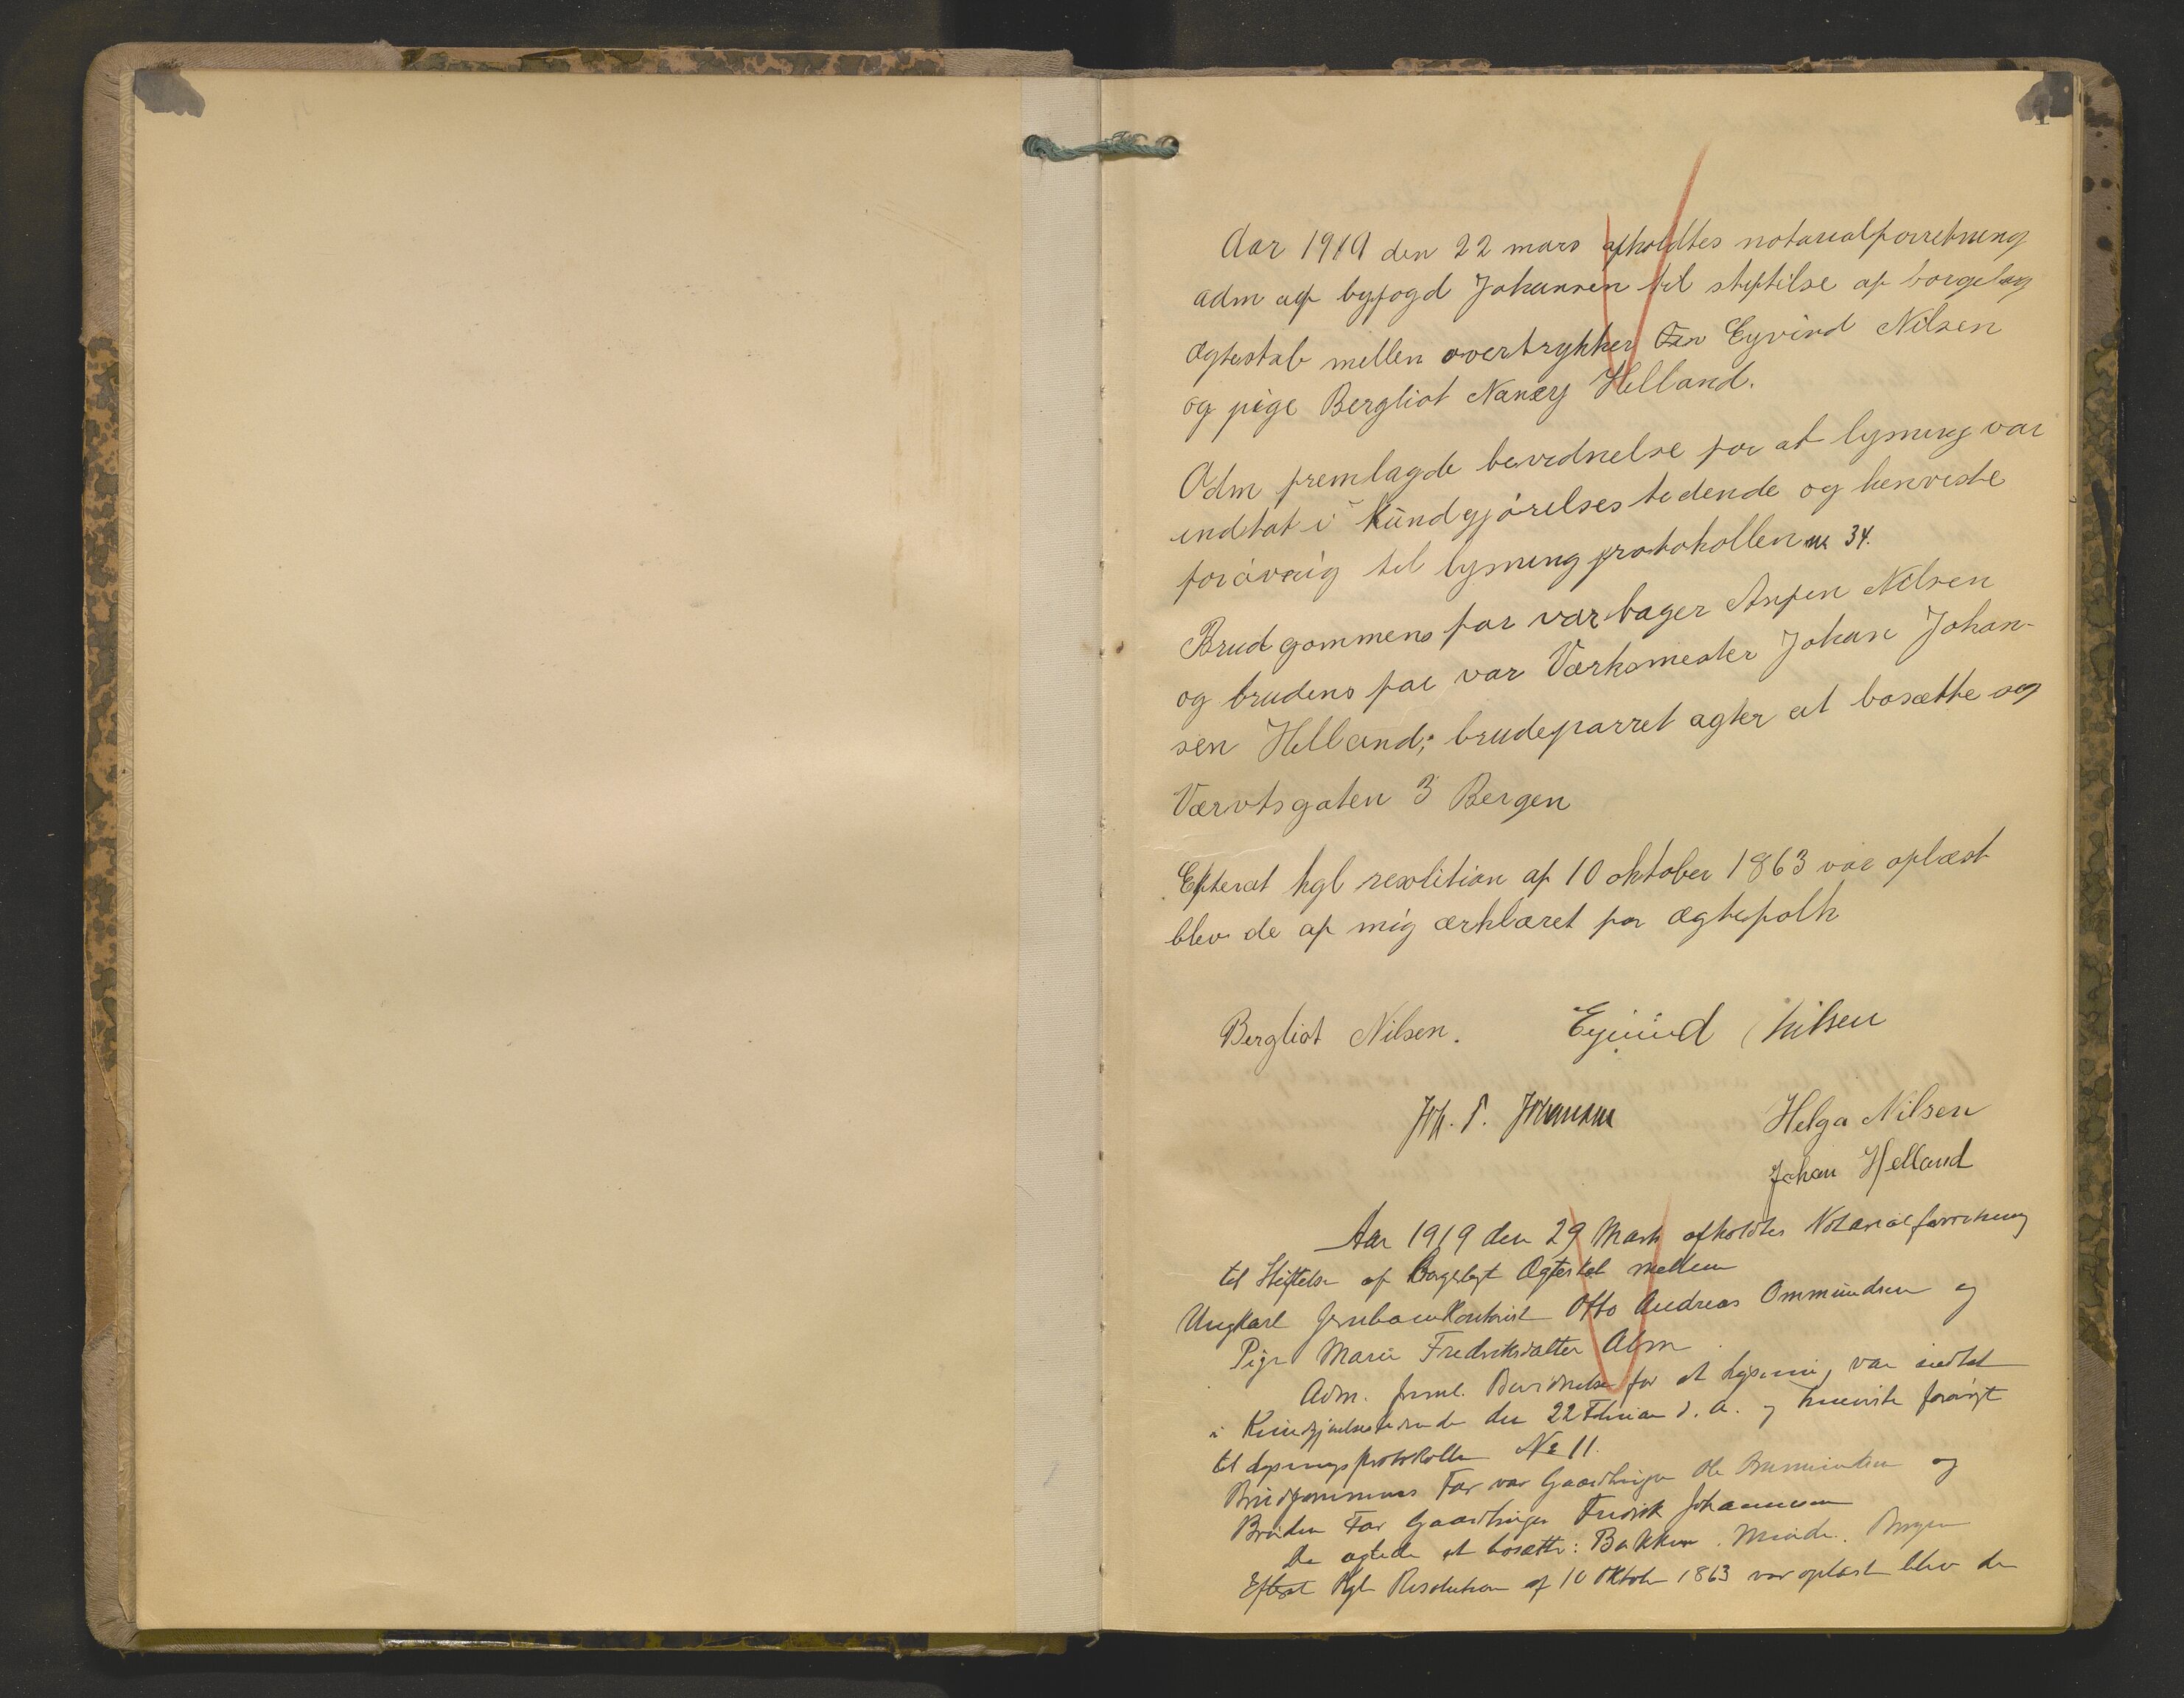 1
Aar 1919 den 22 mars afholdtes notarialforretning
adm af byfogd Johansen til stiftelse af borgelig
Ægteskab mellen overtrykker Eyvind Nilsen
og pige Bergliot Nancy Helland.
Adm fremlagde bevidnelse for at lysning var
indtat i Kundgjørelsestidende og henviste
forøvrig til lysning protokollen nr 34.
Brudgommens far var bager Anfin Nilsen
og brudens far var Værksmester Johan Johan-
sen Helland; brudeparret agter at bosætte seg
Værvtsgaten 3 Bergen
Efterat kgl resolition af 10 oktober 1863 var oplæst
blev de af mig ærklæret for Ægtefolk
Bergliot Nilsen. Eyvind Nilsen
Joh. Johansen Helga Nilsen
Johan Helland
Aar 1919 den 29 Marts afholdtes Notarialforretning
til Stiftelse af Borgerligt Ægteskab mellem
Ungkarl Jernbanekontorist Otto Andreas Ommundsen og
Pige Marie Fredriksdatter Alm
Adm. freml. Bevidnelse for at Lysning var indtat
i Kundgjørelsestidende den 22 Februar d. A. og henviste forøvrigt
til Lysningsprotokollen No 11.
Brudgommens Far var Gaardbruger Ole Ommundsen og
Brudens Far Gaardbruger Fredrik Johannessen
De agtede at bosætte: Bakken. Minde. Bergen
Efterat Kgl Resolution af 10 Oktober 1863 var oplæst blev de